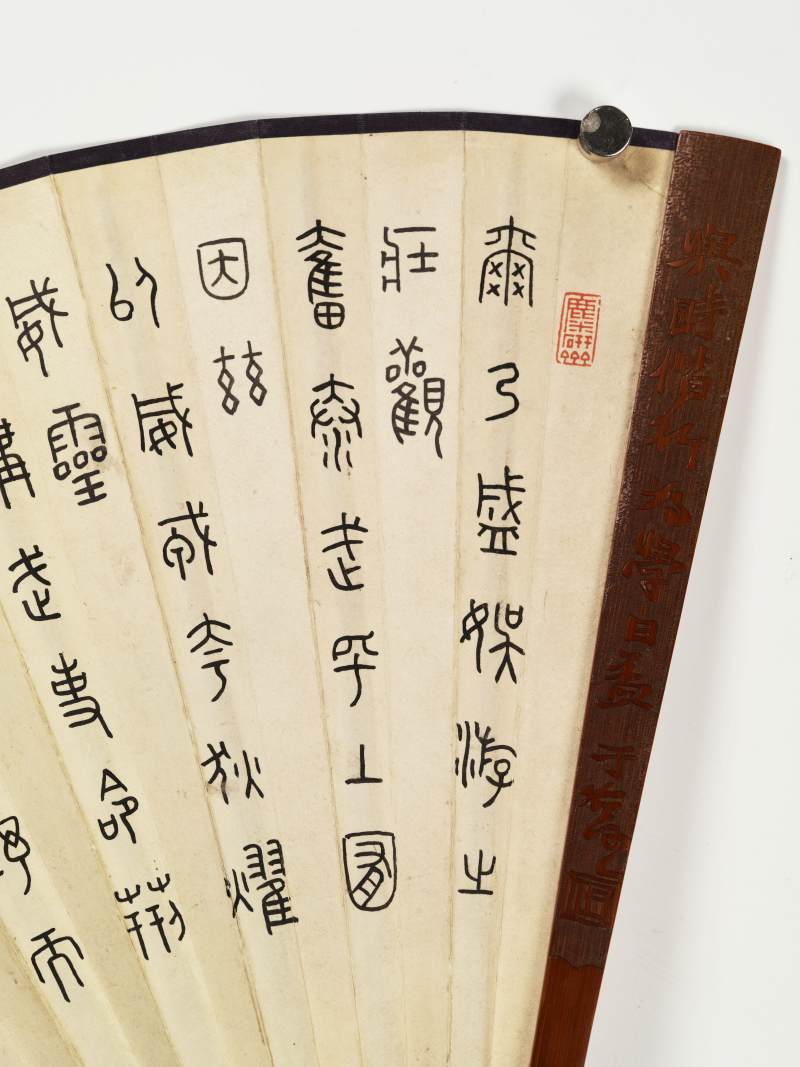 與時偕行
爾乃盛娛游之
壯觀
奮泰武乎上囿
因茲
以威戎夸狄耀
威靈
講武事命荊
而